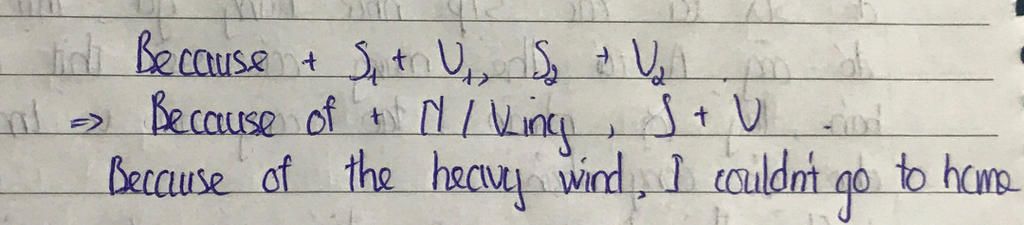 Because + S₁ + V₁, S₂ + V₂
=> Because of + N / Ving, S + V
Because of the heavy wind, I couldn't go to home